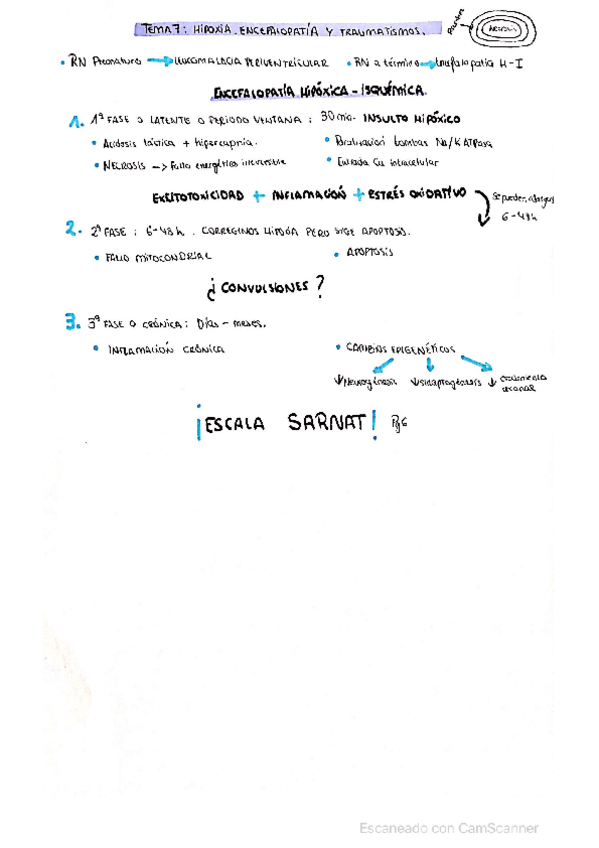 TEMA 7: HIPOXIA, ENCEFALOPATÍA Y TRAUMATISMOS.
NECROSIS
• RN Prematuro → LEUCOMALACIA PERIVENTRICULAR • RN a término → Encefalopatía H-I
ENCEFALOPATÍA HIPÓXICA-ISQUÉMICA.
1. 1ª FASE O LATENTE O PERIODO VENTANA: 30 min. INSULTO HIPÓXICO
• Acidosis láctica + hipercapnia. • Paralización bombas Na/K ATPasa
• NECROSIS → Fallo energético irreversible • Entrada Ca intracelular
EXCITOTOXICIDAD + INFLAMACIÓN + ESTRÉS OXIDATIVO
6-48h
2. 2ª FASE: 6-48 h. CORREGIMOS HIPOXIA PERO SIGE APOPTOSIS.
• FALLO MITOCONDRIAL • APOPTOSIS
¿CONVULSIONES?
3. 3ª FASE O CRÓNICA: Días - meses.
• INFLAMACIÓN CRÓNICA • CAMBIOS EPIGENÉTICOS
↓Neurogénesis ↓sinaptogénesis ↓ crecimiento axonal
¡ESCALA SARNAT! Pg 6
Escaneado con CamScanner